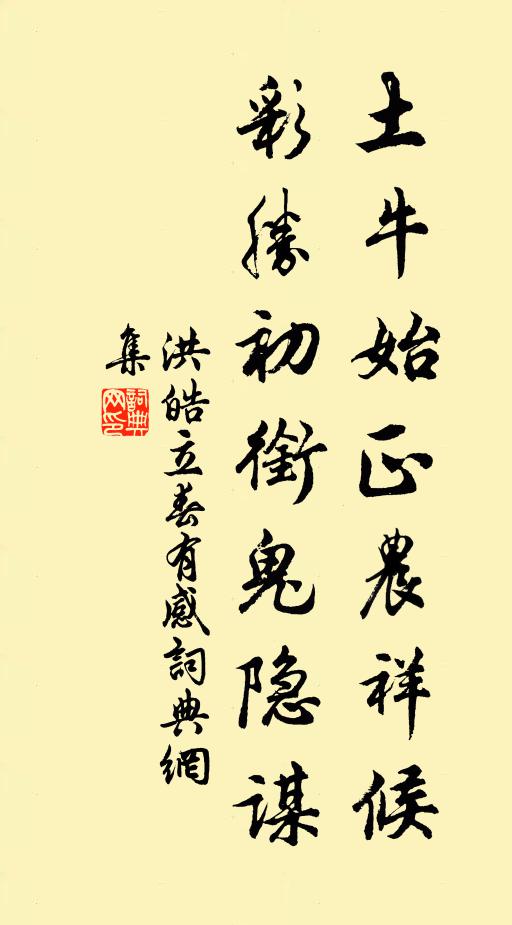 土牛始正農祥候
彩勝初銜鬼隐謀
洪皓立春有感詞典網
集
詞典
网印